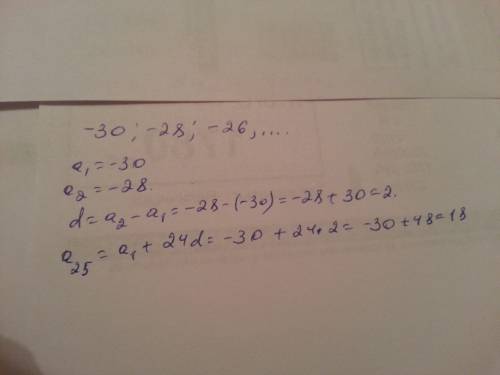 -30; -28; -26,....
a₁=-30
a₂=-28.
d=a₂-a₁=-28-(-30)=-28+30=2.
a₂₅=a₁+24d=-30+24·2=-30+48=18